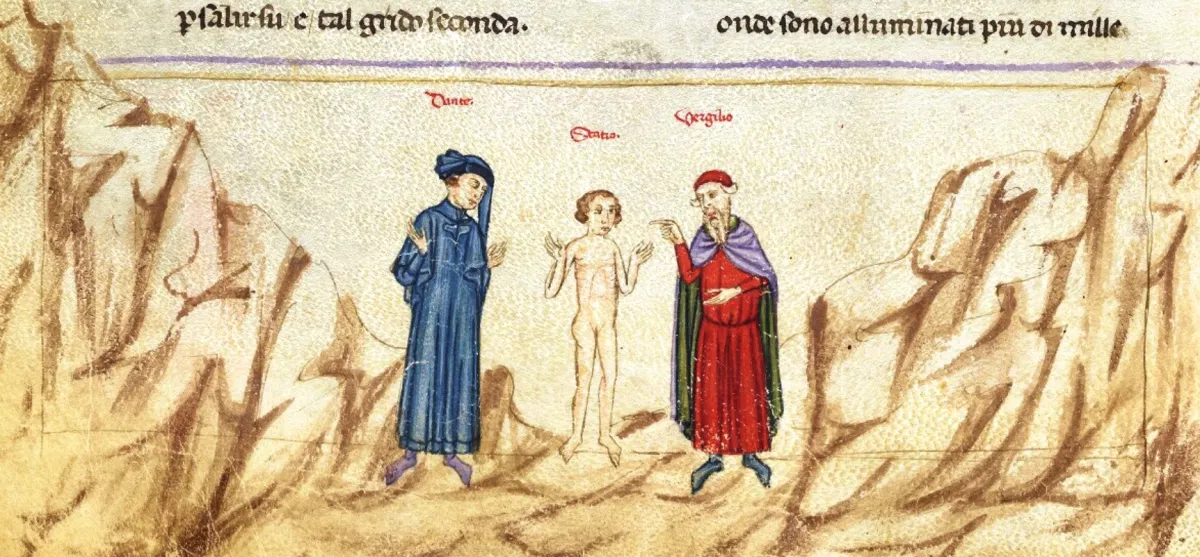 psalir su e tal grido seconda.
onde sono alluminati più di mille.
Dante.
Statio.
Vergilio